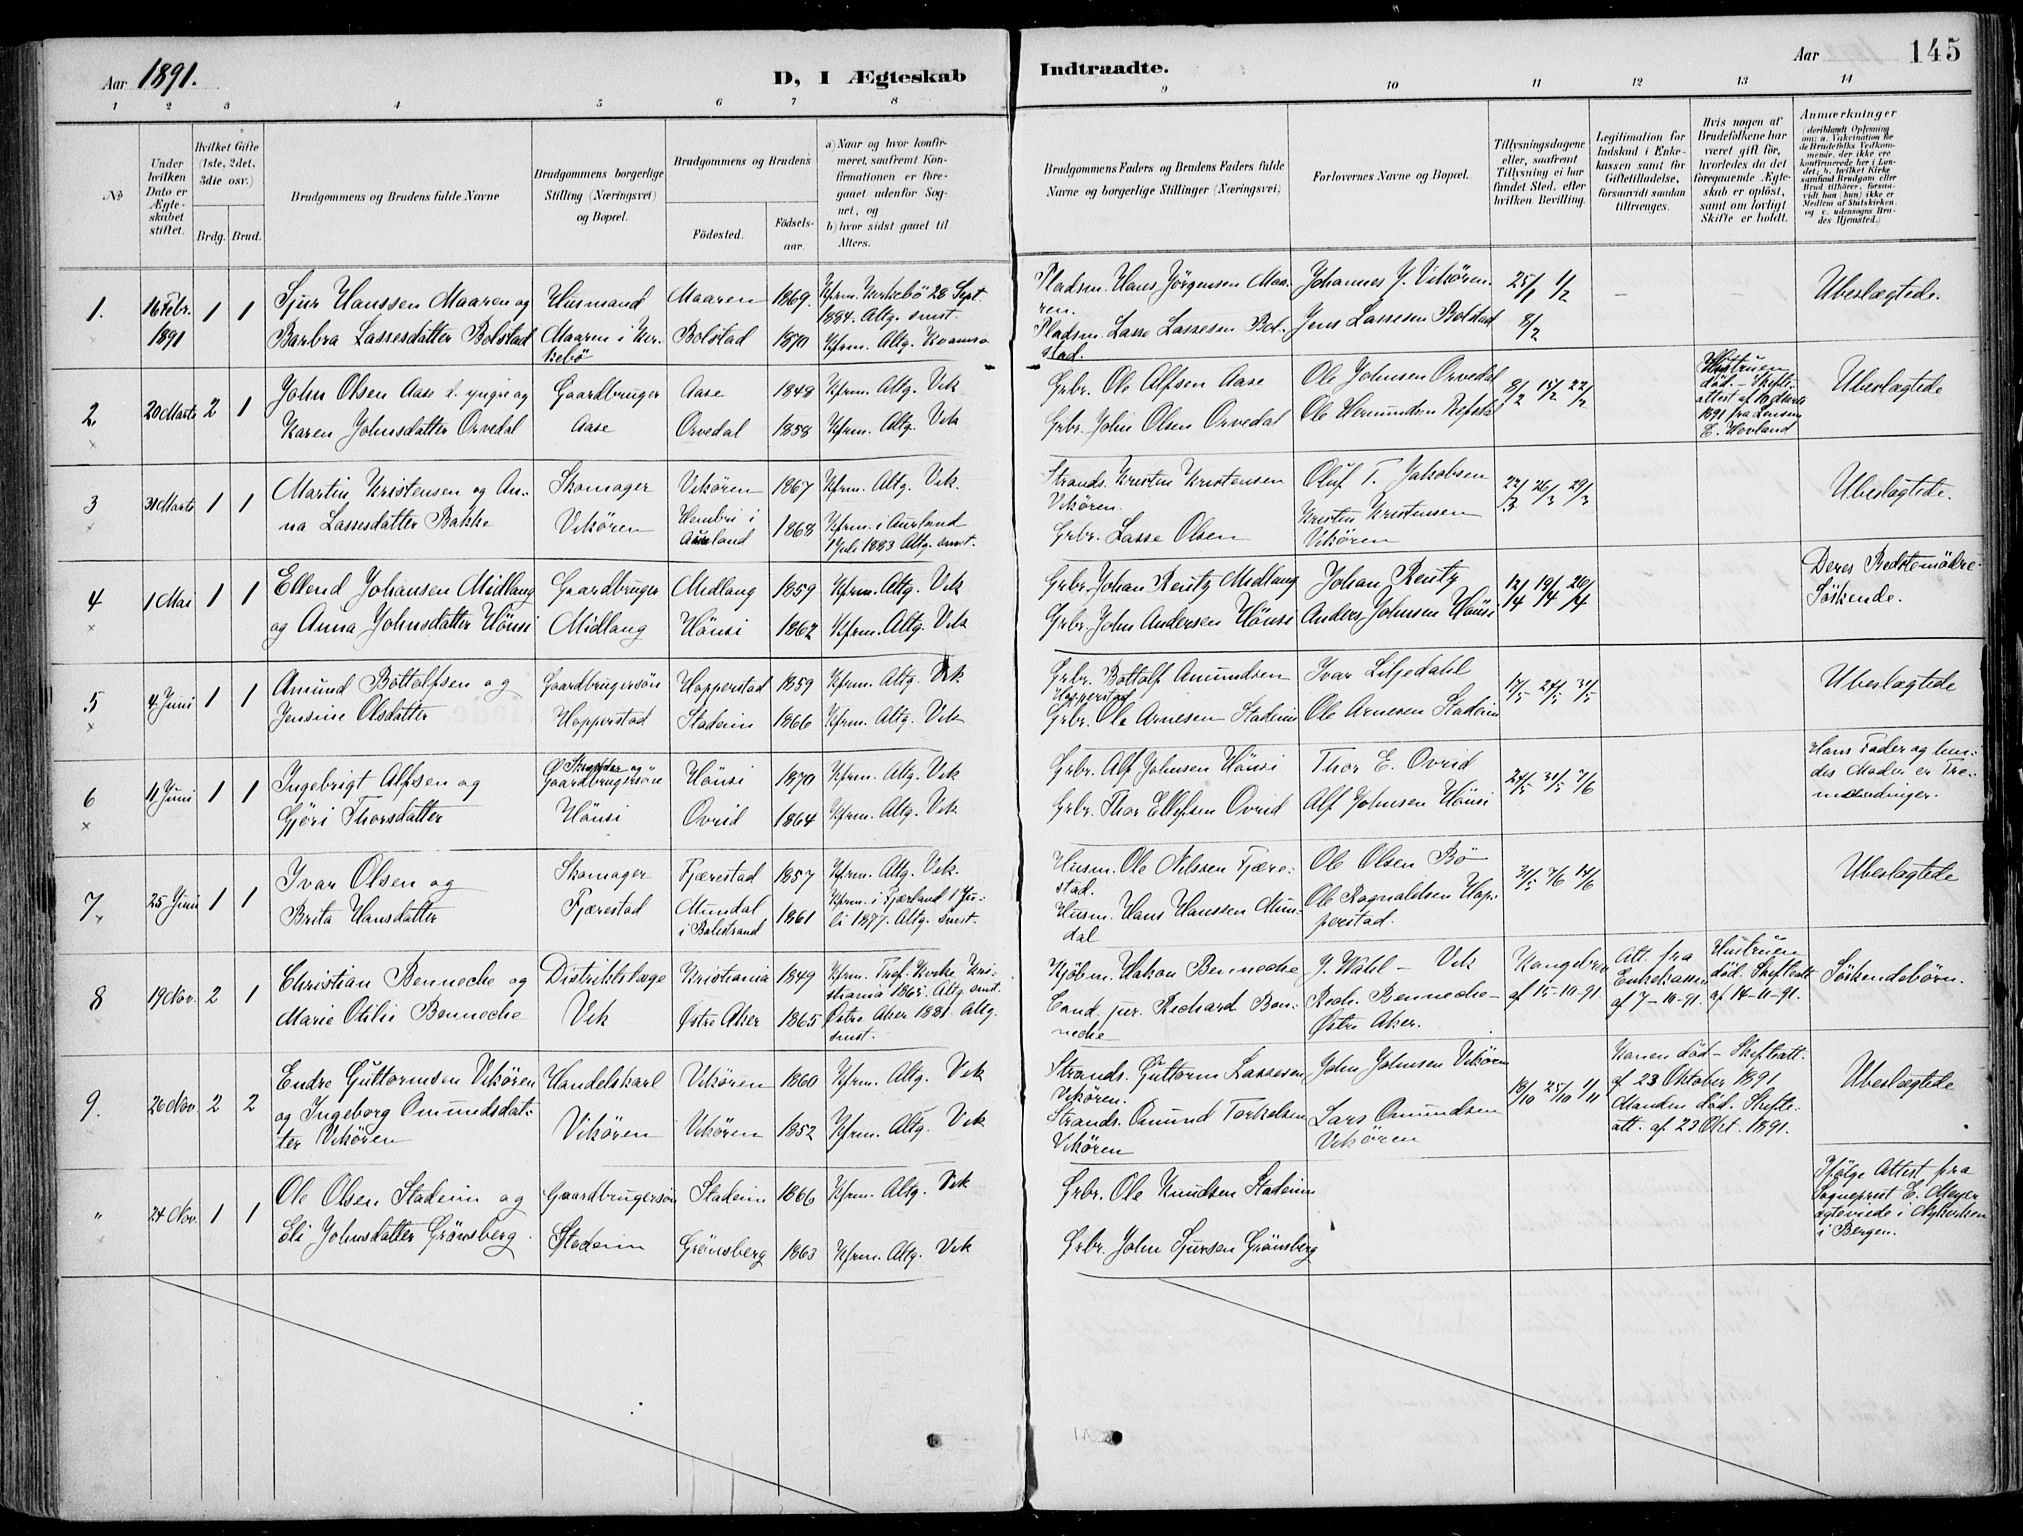 Aar 1891.
D, I Ægteskab
Indtraadte.
Aar
145
1 2 3 4 5 6 7 8 9 10 11 12 13 14
No
Under hvilken Dato er Ægteskabet stiftet.
Hvilket Gifte (1ste, 2det, 3die osv.)
Brdg. Brud.
Brudgommens og Brudens fulde Navne
Brudgommens borgerlige Stilling (Næringsvei) og Bopæl.
Brudgommens og Brudens
Fødested.
Fødsels-aar.
a) Naar og hvor konfirmeret, saafremt Konfirmationen er foregaaet udenfor Sognet, og
b) hvor sidst gaaet til Alters.
Brudgommens Faders og Brudens Faders fulde Navne og borgerlige Stillinger (Næringsvei)
Forlovernes Navne og Bopæl.
Tillysningsdagene eller, saafremt Tillysning ei har fundet Sted, efter hvilken Bevilling.
Legitimation for Indskud i Enkekassen samt for Giftetilladelse, forsaavidt saadan tiltrænges.
Hvis nogen af Brudefolkene har været gift før, hvorledes da det foregaaende Ægteskab er opløst, samt om lovligt Skifte er holdt.
Anmærkninger
(deriblandt Oplysning om: a. Vakcination for de Brudefolks Vedkommende, der ikke ere konfirmerede her i Landet; b. hvilket Kirkesamfund Brudgom eller Brud tilhører, forsaavidt han (hun) ikke er Medlem af Statskirken, og c. udensogns Brudes Hjemsted.)
1. 16 Febr. 1891 1 1
Sjur Hanssen Maaren og
Barbra Lassesdatter Bolstad
Husmand
Maaren i Kirkebö
Maaren 1869.
Bolstad 1870
Kfrm. Kirkebö 28 Sept. 1884. Altg. smst.
Kfrm. Altg. Kvamsö
Pladsm. Hans Jörgensen Maaren.
Pladsm. Lasse Lassesen Bolstad.
Johannes J. Vikören
Jens Lassesen Bolstad
25/1 1/2 8/2
Ubeslægtede.
2. 20 Marts 2 1
John Olsen Aase d. yngre og
Karen Johnsdatter Orvedal
Gaardbruger
Aase
Aase 1848
Orvedal 1858
Kfrm. Altg. Vik
Kfrm. Altg. Vik
Grbr. Ole Alfsen Aase
Grbr. John Olsen Orvedal
Ole Johnsen Orvedal
Ole Hermundsen Refsdal
8/2 15/2 22/2
Hustruen död. - Skifteattest af 10 Marts 1891 fra Lensm. E. Hovland
Ubeslægtede
3 31 Marts 1 1
Martin Kristensen og Anna Lassesdatter Bakke
Skomager
Vikören
Vikören 1867
Hembri i Aurland 1868
Kfrm. Altg. Vik.
Kfrm. i Aurland 1 Juli 1883 Altg. smst.
Strands. Kristen Kristensen Vikören.
Grbr. Lasse Olsen
Oluf T. Jakobsen
Kristen Kristensen Vikören
22/3 26/3 29/3
Ubeslægtede.
4 1 Mai 1 1
Ellend Johansen Midlang
og Anna Johnsdatter Hönsi
Gaardbruger
Midlang
Midlang 1859
Hönsi 1862
Kfrm. Altg. Vik
Kfrm. Altg. Vik
Grbr. Johan Reutz Midlang
Grbr. John Andersen Hönsi
Johan Reutz
Anders Johnsen Hönsi
12/4 19/4 26/4
Deres Bedstemödre Söskende.
5 4 Juni 1 1
Amund Bottolfsen og
Jensine Olsdatter
Gaardbrugersön
Hopperstad
Hopperstad 1859
Stadeim 1866
Kfrm. Altg. Vik.
Kfrm. Altg. Vik
Grbr. Bottolf Amundsen Hopperstad
Grbr. Ole Arnesen Stadeim
Ivar Liljedahl
Ole Arnesen Stadeim
17/5 24/5 31/5
Ubeslægtede
6 11 Juni 1 1
Ingebrigt Alfsen og
Gjöri Thorsdatter
Skrædder og Gaardbrugersön
Hönsi
Hönsi 1870
Ovrid 1864
Kfrm. Altg. Vik
Kfrm. Altg. Vik
Grbr. Alf Johnsen Hönsi
Grbr. Thor Ellefsen Ovrid
Thor E. Ovrid
Alf Johnsen Hönsi
24/5 31/5 7/6
Hans Fader og hendes Moder er Tremændinger.
7 25 Juni 1 1
Ivar Olsen og
Brita Hansdatter
Skomager
Fjærestad
Fjærestad 1857
Mundal i Balestrand 1861
Kfrm. Altg. Vik.
Kfrm. i Fjærland 1 Juli 1877. Altg. smst.
Husm. Ole Nilssen Fjærestad.
Husm. Hans Hanssen Mundal
Ole Olsen Bö
Ole Rognaldsen Hopperstad.
31/5 7/6 14/6
Ubeslægtede
8 19 Nov. 2 1
Christian Benneche og
Marie Otilie Benneche
Distriktslæge
Vik
Kristiania 1849
Østre Aker 1865
Kfrm. Tref. Kirke Kristiania 1865. Altg. smst.
Østre Aker 1881. Altg. smst.
Kjöbm. Hakon Benneche
Cand. jur. Richard Benneche
J. Wahl - Vik
Rich. Benneche - Østre Aker.
Kongebrev af 15-10-91.
Att. fra Enkekassen af 7-10-91.
Hustruen död. Skifteatt. af 14-11-91.
Söskendebörn.
9. 26 Nov. 2 2
Endre Guttormsen Vikören
og Ingeborg Omundsdatter Vikören
Handelskarl
Vikören
Vikören 1860
Vikören 1852
Kfrm. Altg. Vik
Kfrm. Altg. Vik
Strands. Guttorm Lassesen Vikören.
Strands. Omund Torkelsen Vikören
John Johnsen Vikören
Lars Omundsen Vikören
18/10 25/10 1/11
Konen död - Skifteatt. af 23 Oktober 1891
Manden död. Skifteatt. af 23 Okt. 1891.
Ubeslægtede
" 24 Nov. 1 1
Ole Olsen Stadeim og
Eli Johnsdatter Grönsberg.
Gaardbrugersön
Stadeim
Stadeim 1866
Grönsberg 1863
Kfrm. Altg. Vik
Kfrm. Altg. Vik
Grbr. Ole Knudsen Stadeim
Grbr. John Sjursen Grönsberg
Ifölge Attest fra Sogneprest E. Meyer ægteviede i Nykirken i Bergen.